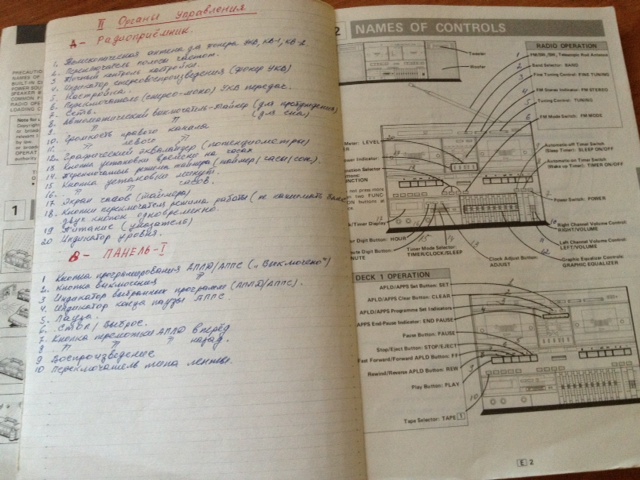 II Органы Управления
A - Радиоприёмник.
1. Телескопическая антена для тюнера УКВ, КВ-1, КВ-2
2. Переключатель полосы частот.
3 Точный контроль настройки
4 Индикатор стереовоспроизведения (тюнер УКВ)
5. Настройка.
6. Переключатель (стерео-моно) УКВ передач.
7. Сеть.
8 Автоматический выключатель-таймер (для пробуждения)
9 " " (для сна)
10. Громкость правого канала
11. " левого "
12. Графический эквалайзер (потенциометры)
13 Кнопки установки времени на часах
14 Переключатель режима таймера (таймер/часы/сон).
15 Кнопка установки минут.
16 " " часов.
17 Экран часов (таймера)
18. Кнопки переключателя режима работы (не нажимать
двух кнопок одновременно.
19 Питание (указатель)
20 Индикатор уровня.
B - ПАНЕЛЬ-I
1. Кнопка программирования АПЛД/АППС („Включено")
2. Кнопка выключения "
3 Индикатор выбранных программ (АПЛД/АППС).
4. Индикатор конца паузы АППС
5. Пауза.
6. СТОП/Выброс.
7 Кнопка перемотки АПЛД вперёд
8 " " " назад.
9 Воспроизведение
10 Переключатель типа ленты.
PRECAUTION
1
2 NAMES OF CONTROLS
Tweeter
Woofer
RADIO OPERATION
FM/SW1, SW2 Telescopic Rod Antenna
Band Selector: BAND
Fine Tuning Control: FINE TUNING
FM Stereo Indicator: FM STEREO
Tuning Control: TUNING
FM Mode Switch: FM MODE
Meter: LEVEL
Indicator:
Function Selector
Automatic-off Timer Switch
(Sleep Timer): SLEEP ON/OFF
Automatic-on Timer Switch
(Wake-up Timer): TIMER ON/OFF
Power Switch: POWER
Right Channel Volume Control:
RIGHT/VOLUME
Left Channel Volume Control:
LEFT/VOLUME
Graphic Equalizer Controls:
GRAPHIC EQUALIZER
Timer Display
Digit Button: HOUR
Digit Button:
MINUTE
Timer Mode Selector:
TIMER/CLOCK/SLEEP
Clock Adjust Button:
ADJUST
DECK 1 OPERATION
APLD/APPS Set Button: SET
APLD/APPS Clear Button: CLEAR
APLD/APPS Programme Set Indicators
APPS End-Pause Indicator: END PAUSE
Pause Button: PAUSE
Stop/Eject Button: STOP/EJECT
Fast Forward/Forward APLD Button: FF
Rewind/Reverse APLD Button: REW
Play Button: PLAY
Tape Selector: TAPE 1
E 2